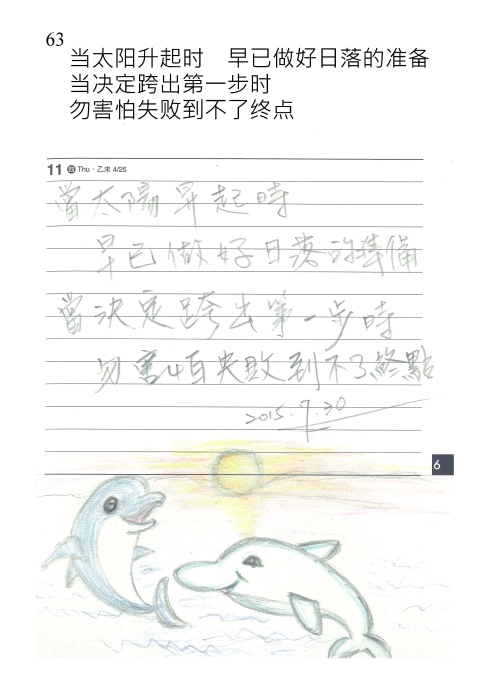 63
当太阳升起时　早已做好日落的准备
当决定跨出第一步时
勿害怕失败到不了终点
11 四 Thu · 乙未 4/25
當太陽昇起時
早已做好日落的準備
當決定跨出第一步時
勿害怕失敗到不了終點
2015.7.20
6